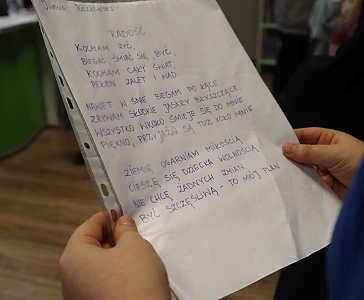 RADOŚĆ
KOCHAM ŻYĆ,
BIEGAĆ, ŚMIAĆ SIĘ, BYĆ.
KOCHAM CAŁY ŚWIAT,
PEŁEN ZALET I WAD
NAWET W ŚNIE BIEGAM PO ŁĄCE
ZRYWAM SŁODKIE JASKRY BŁYSZCZĄCE
WSZYSTKO WKOŁO ŚMIEJE SIĘ DO MNIE
PIĘKNO, PRZYJAŹŃ SĄ TUŻ KOŁO MNIE
ZIEMIĘ OGARNIAM MIŁOŚCIĄ,
CIESZĘ SIĘ DZIECKA WOLNOŚCIĄ
NIE CHCĘ ŻADNYCH ZMIAN
BYĆ SZCZĘŚLIWĄ - TO MÓJ PLAN